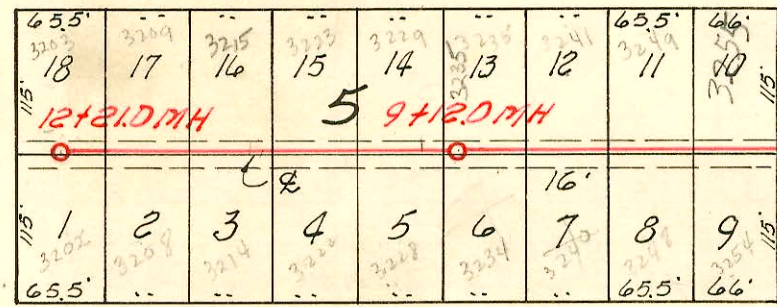 65.5' .. .. .. .. .. .. 65.5' 66'
3203 3209 3215 3223 3229 3235 3235 3241 3249 3255
18 17 16 15 14 13 12 11 10
115' 115'
12+21.0 MH 5 9+12.0 MH
℄ 16'
115' 115'
1 2 3 4 5 6 7 8 9
3202 3208 3214 3222 3228 3234 3240 3248 3254
65.5' .. .. .. .. .. .. 65.5' 66'